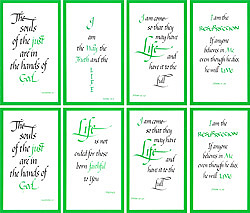 The
souls
of the just
are in
the hands of
God.
I
am
the Way, the
Truth and the
LIFE
I am come—
so that they
may have
Life
and
have it to the
full
I am the
RESURRECTION
If anyone
believes in Me
even though he dies
he will LIVE
The
souls
of the just
are in
the hands of
God.
Life
is not
ended for those
born faithful
to You
I am come—
so that they
may have
Life
and
have it to the
full
I am the
RESURRECTION
If anyone
believes in Me
even though he dies
he will LIVE